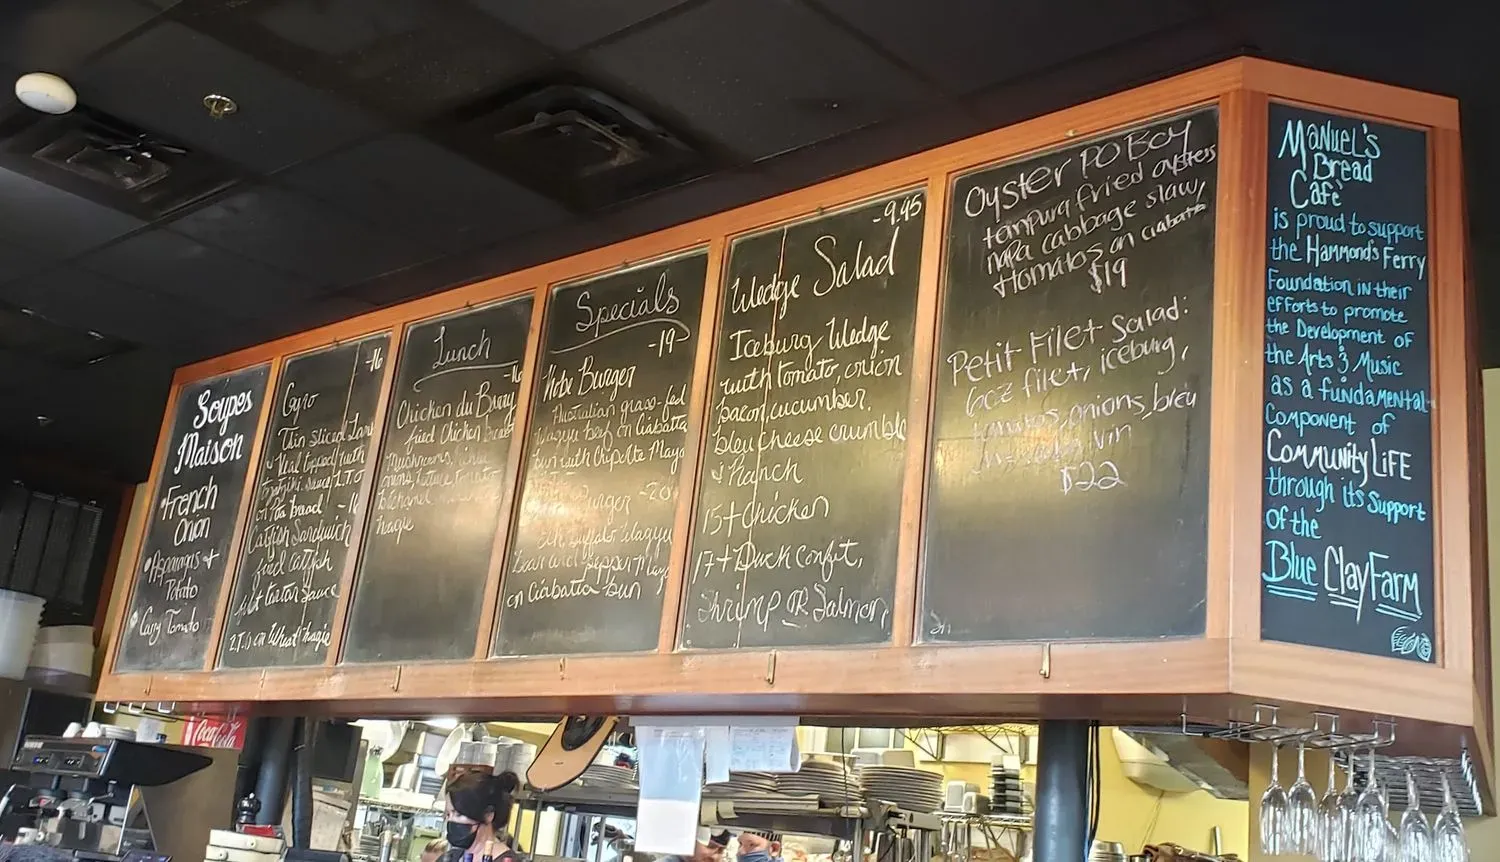 Soupes
Maison
• French
Onion
• Asparagus +
Potato
• Curry Tomato
Gyro -16
Thin sliced Lamb
& Veal topped with
Tzatziki sauce, L.T.O
on Pita bread -16
Catfish Sandwich
fried catfish
tartar sauce
L.T.O on Wheat Hoagie
Lunch
-16
Chicken du Bang
fried Chicken Breast
Mushrooms,
onions, lettuce, tomato
hoagie
Specials
-19-
Kobe Burger
Australian grass-fed
Wagyu beef on Ciabatta
bun with Chipotle Mayo
Burger -20
Elk, Buffalo, Wagyu
Boar and pepper Mayo
on Ciabatta bun
-9.45
Wedge Salad
Iceburg Wedge
with tomato, onion
bacon, cucumber,
bleu cheese crumble
& Ranch
15+ Chicken
17+ Duck Confit,
Shrimp OR Salmon
Oyster PO BOY
tempura fried oysters
napa cabbage slaw,
tomatos on ciabatta
$19
Petit Filet Salad:
6oz filet, iceburg,
tomatos, onions, bleu
$22
Manuel's
Bread
Café
is proud to support
the Hammond's Ferry
Foundation in their
efforts to promote
the Development of
the Arts & Music
as a fundamental
component of
Community Life
through its support
of the
Blue Clay Farm
Coca-Cola